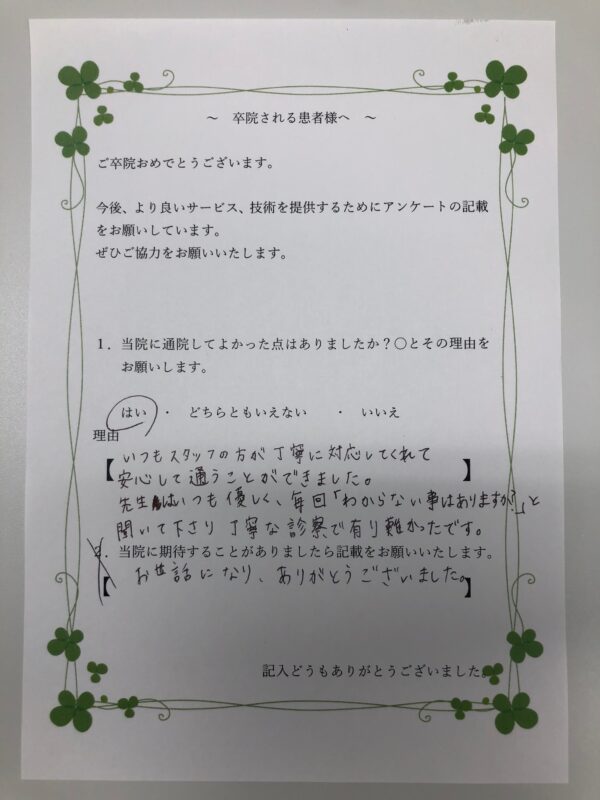 ～ 卒院される患者様へ ～
ご卒院おめでとうございます。
今後、より良いサービス、技術を提供するためにアンケートの記載
をお願いしています。
ぜひご協力をお願いいたします。
1．当院に通院してよかった点はありましたか？〇とその理由を
お願いします。
はい ・ どちらともいえない ・ いいえ
理由
【いつもスタッフの方が丁寧に対応してくれて
安心して通うことができました。】
先生はいつも優しく、毎回「わからない事はありますか?」と
聞いて下さり丁寧な診察で有り難かったです。
2．当院に期待することがありましたら記載をお願いいたします。
【お世話になり、ありがとうございました。】
記入どうもありがとうございました。